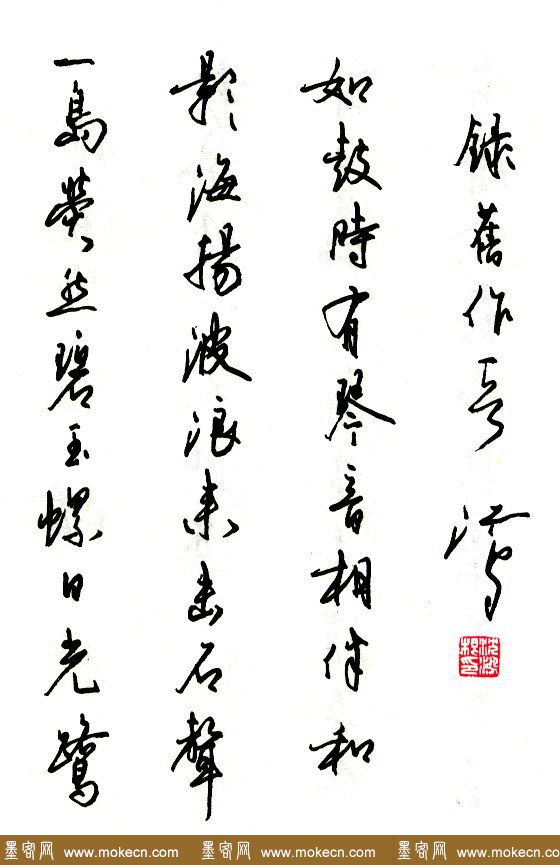 一島瑩然碧玉螺日光鷺
影海揚波浪来击石聲
如鼓時有琴音相伴和
錄舊作一首 鸿
沈鸿根印
墨客网 www.mokecn.com 墨客网 www.mokecn.com 墨客网 www.mokecn.com